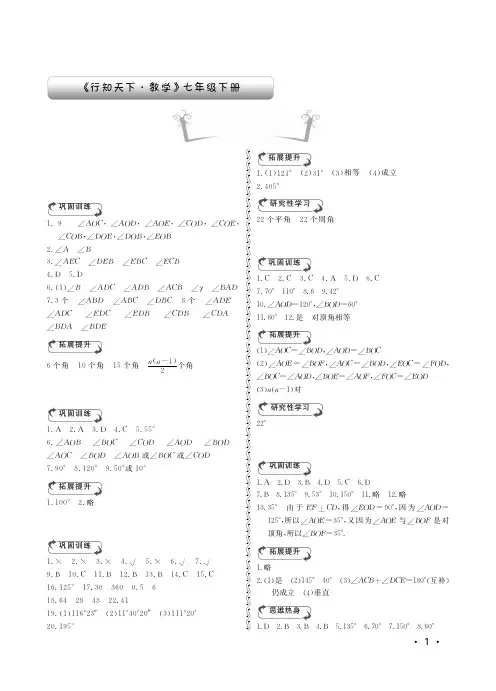 《行知天下·数学》七年级下册
巩固训练
1. 9 ∠AOC,∠AOD,∠AOE,∠COD,∠COE,
∠COB,∠DOE,∠DOB,∠EOB
2.∠A ∠B
3.∠AEC ∠DEB ∠EBC ∠ECB
4.D 5.D
6.(1)∠B ∠ADC ∠ADB ∠ACB ∠γ ∠BAD
7.3个 ∠ABD ∠ABC ∠DBC 8个 ∠ADE
∠ADC ∠EDC ∠EDB ∠CDB ∠CDA
∠BDA ∠BDE
拓展提升
6个角 10个角 15个角 n(n-1)/2个角
巩固训练
1.A 2.A 3.D 4.C 5.55°
6.∠AOB ∠BOC ∠COD ∠AOD ∠BOD
∠AOC ∠BOD ∠AOB或∠BOC或∠COD
7.90° 8.120° 9.50°或10°
拓展提升
1.100° 2.略
巩固训练
1.× 2.× 3.× 4.√ 5.× 6.√ 7.√
9.B 10.C 11.B 12.B 13.B 14.C 15.C
16.125° 17.30 360 0.5 6
18.64 28 48 22.41
19.(1)116°23″ (2)11°40′20″ (3)111°20′
20.195°
拓展提升
1.(1)121° (2)31° (3)相等 (4)成立
2.405°
研究性学习
22个平角 22个周角
巩固训练
1.C 2.C 3.C 4.A 5.D 6.C
7.70° 110° 8.6 9.42°
10.∠AOD=120°,∠BOD=60°
11.60° 12.是 对顶角相等
拓展提升
(1)∠AOC=∠BOD,∠AOD=∠BOC
(2)∠AOE=∠BOF,∠AOC=∠BOD,∠EOC=∠FOD,
∠BOC=∠AOD,∠BOE=∠AOF,∠FOC=∠EOD
(3)n(n-1)对
研究性学习
22°
巩固训练
1.A 2.D 3.B 4.D 5.C 6.D
7.B 8.135° 9.53° 10.150° 11.略 12.略
13.35° 由于EF⊥CD,得∠EOD=90°,因为∠AOD=
125°,所以∠AOE=35°,又因为∠AOE与∠BOF是对
顶角,所以∠BOF=35°.
拓展提升
1.略
2.(1)是 (2)145° 40° (3)∠ACB+∠DCE=180°(互补)
仍成立 (4)垂直
思维热身
1.D 2.B 3.B 4.B 5.135° 6.70° 7.150° 8.60°
· 1 ·